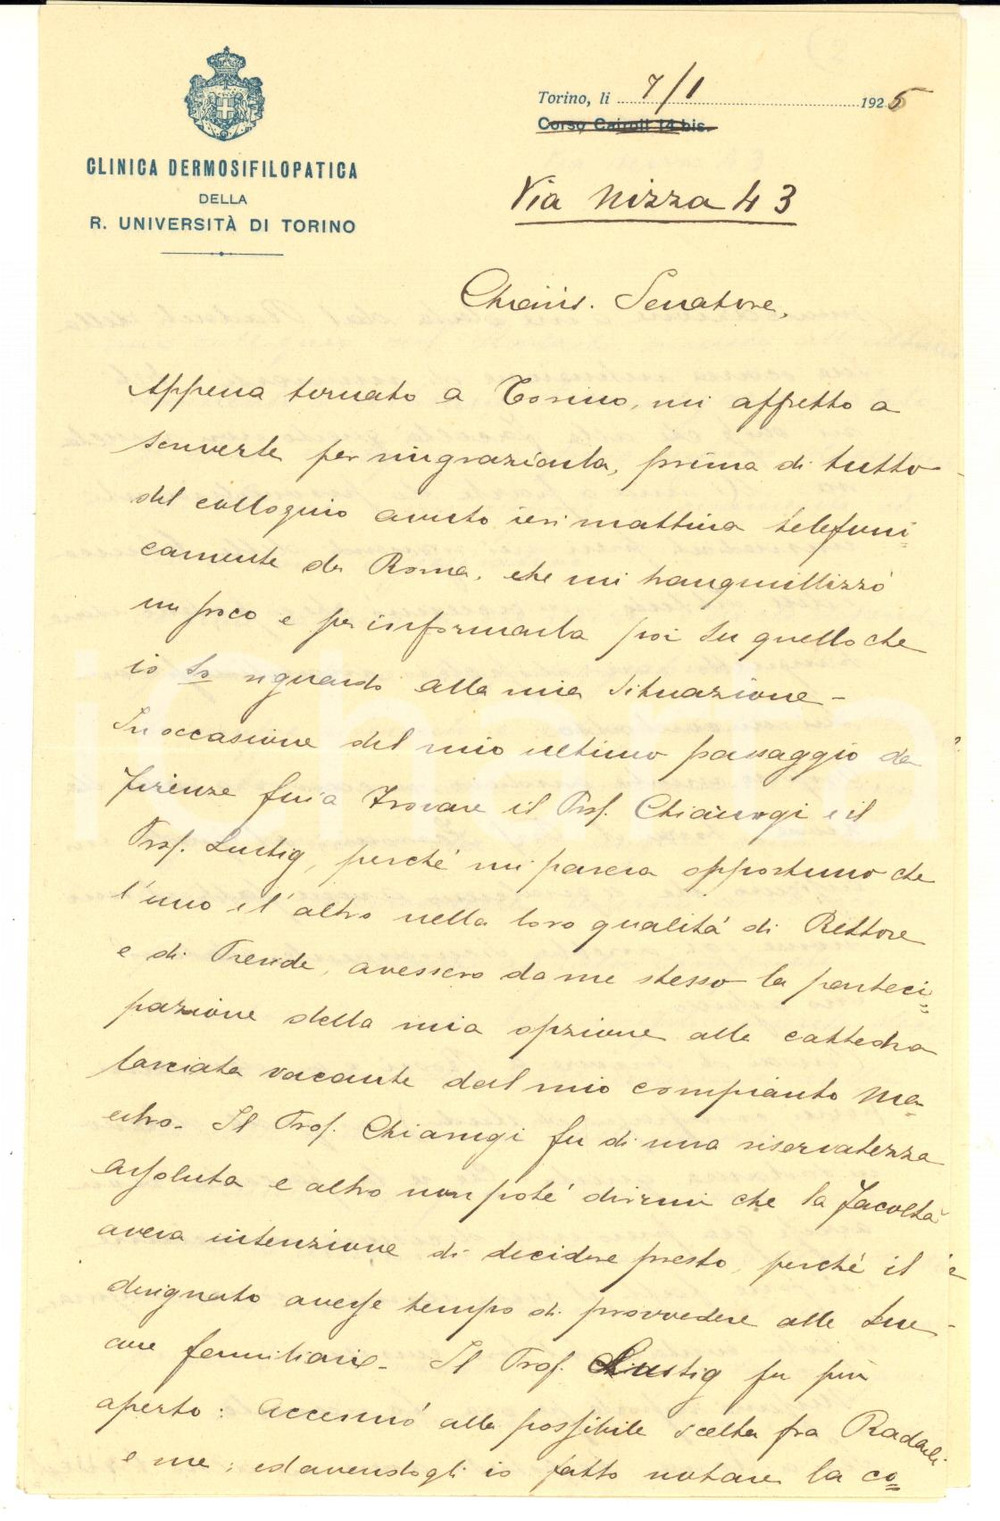 CLINICA DERMOSIFILOPATICA
DELLA
R. UNIVERSITÀ DI TORINO
Torino, li 7/1 1925
Corso Cairoli 14 bis.
Via Nizza 43
Chiariss. Senatore,
Appena tornato a Torino, mi affretto a
scriverle per ringraziarla, prima di tutto
del colloquio avuto ieri mattina telefoni=
camente da Roma, che mi tranquillizzò
un poco e per informarla poi su quello che
io so riguardo alla mia situazione -
In occasione del mio ultimo passaggio da
Firenze fui a trovare il Prof. Chiarugi e il
Prof. Lustig, perché mi pareva opportuno che
l'uno e l'altro nella loro qualità di Rettore
e di Preside, avessero da me stesso la parteci=
pazione della mia opzione alla cattedra
lasciata vacante dal mio compianto Ma=
estro. Il Prof. Chiarugi fu di una riservatezza
assoluta e altro non poté dirmi che la Facoltà
aveva intenzione di decidere presto, perché il
designato avesse tempo di provvedere alle sue
cure famigliari - Il Prof. Lustig fu più
aperto: accennò alla possibile scelta fra Radaeli
e me; ed avendogli io fatto notare la co=